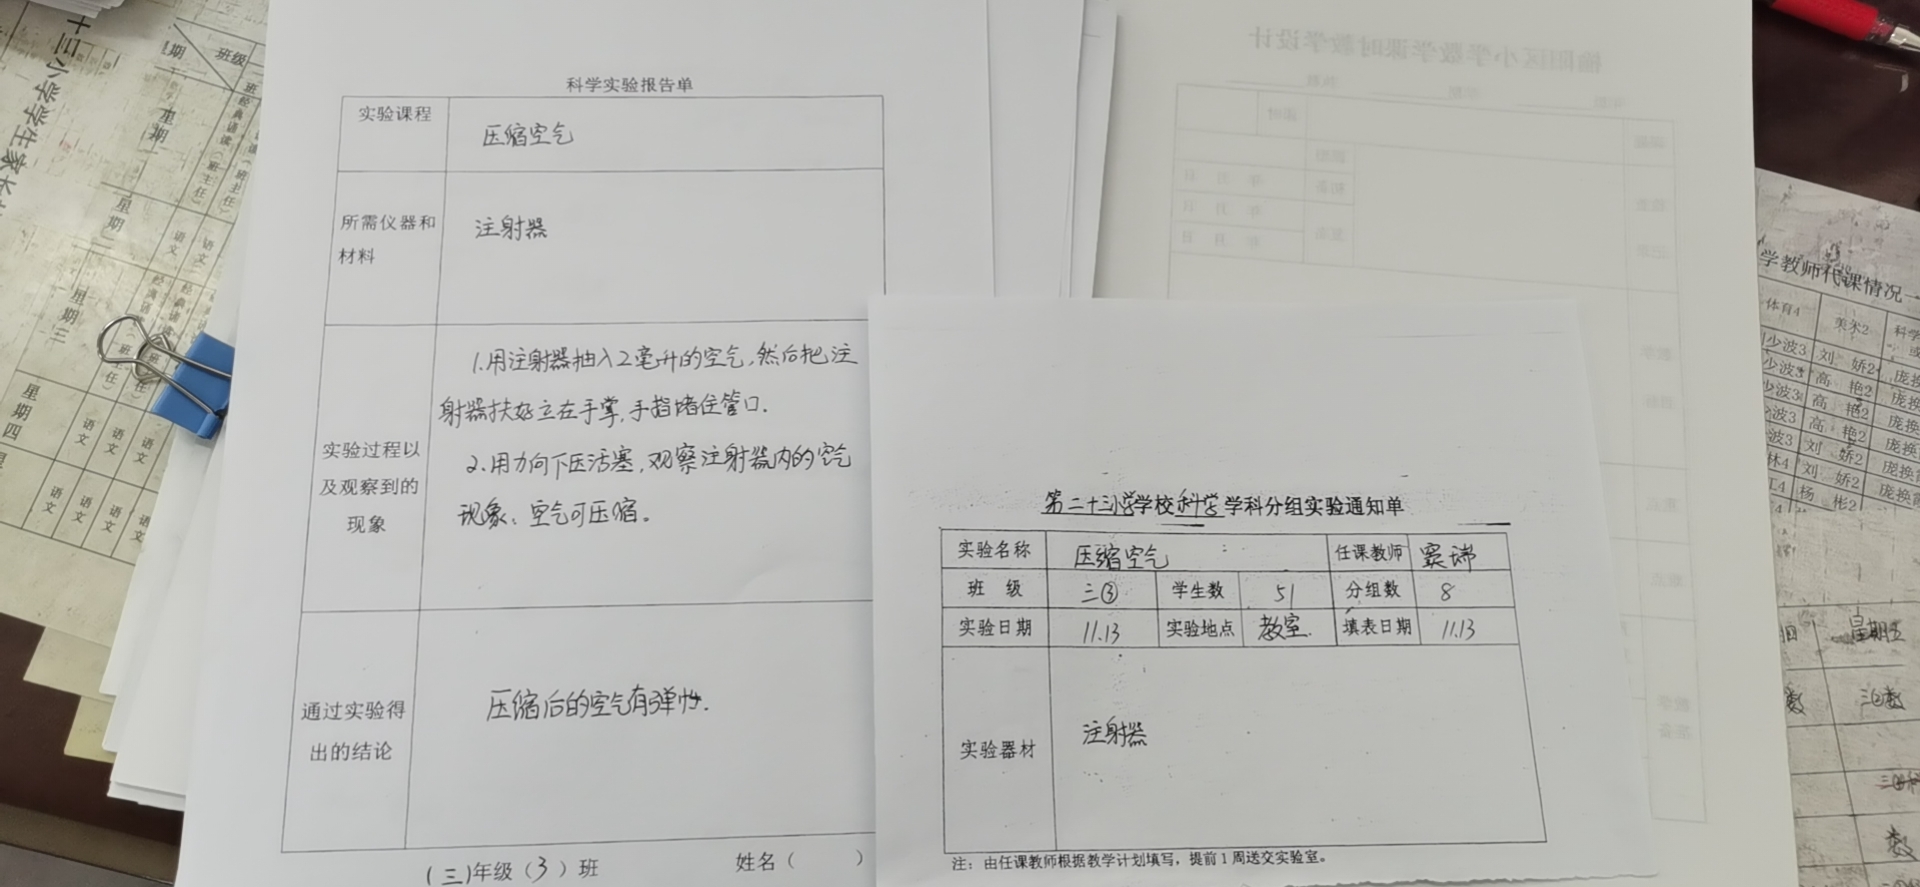 科学实验报告单
实验课程
压缩空气
所需仪器和
材料
注射器
实验过程以
及观察到的
现象
1.用注射器抽入2毫升的空气,然后把注
射器扶好立在手掌,手指堵住管口.
2.用力向下压活塞,观察注射器内的空气
现象:空气可压缩。
通过实验得
出的结论
压缩后的空气有弹性.
(三)年级(3)班 姓名( )
第二十三小学学校科学学科分组实验通知单
实验名称 压缩空气 任课教师 窦瑞
班 级 三③ 学生数 51 分组数 8
实验日期 11.13 实验地点 教室. 填表日期 11.13
实验器材 注射器
注:由任课教师根据教学计划填写,提前1周送交实验室。
榆阳区小学数学课时教学设计
十三小学学生家长
班级
星期
星期一
星期二
星期三
星期四
语文
语文
经典诵读(班主任)
学教师代课情况一
体育4 美术2 科学
少波3 刘 娇2 庞换
少波3 高 艳2 庞换
少波3 高 艳2 庞换
波3 高 艳2 庞换
林4 刘 娇2 庞换
江4 杨 彬2
星期五
三②数
数